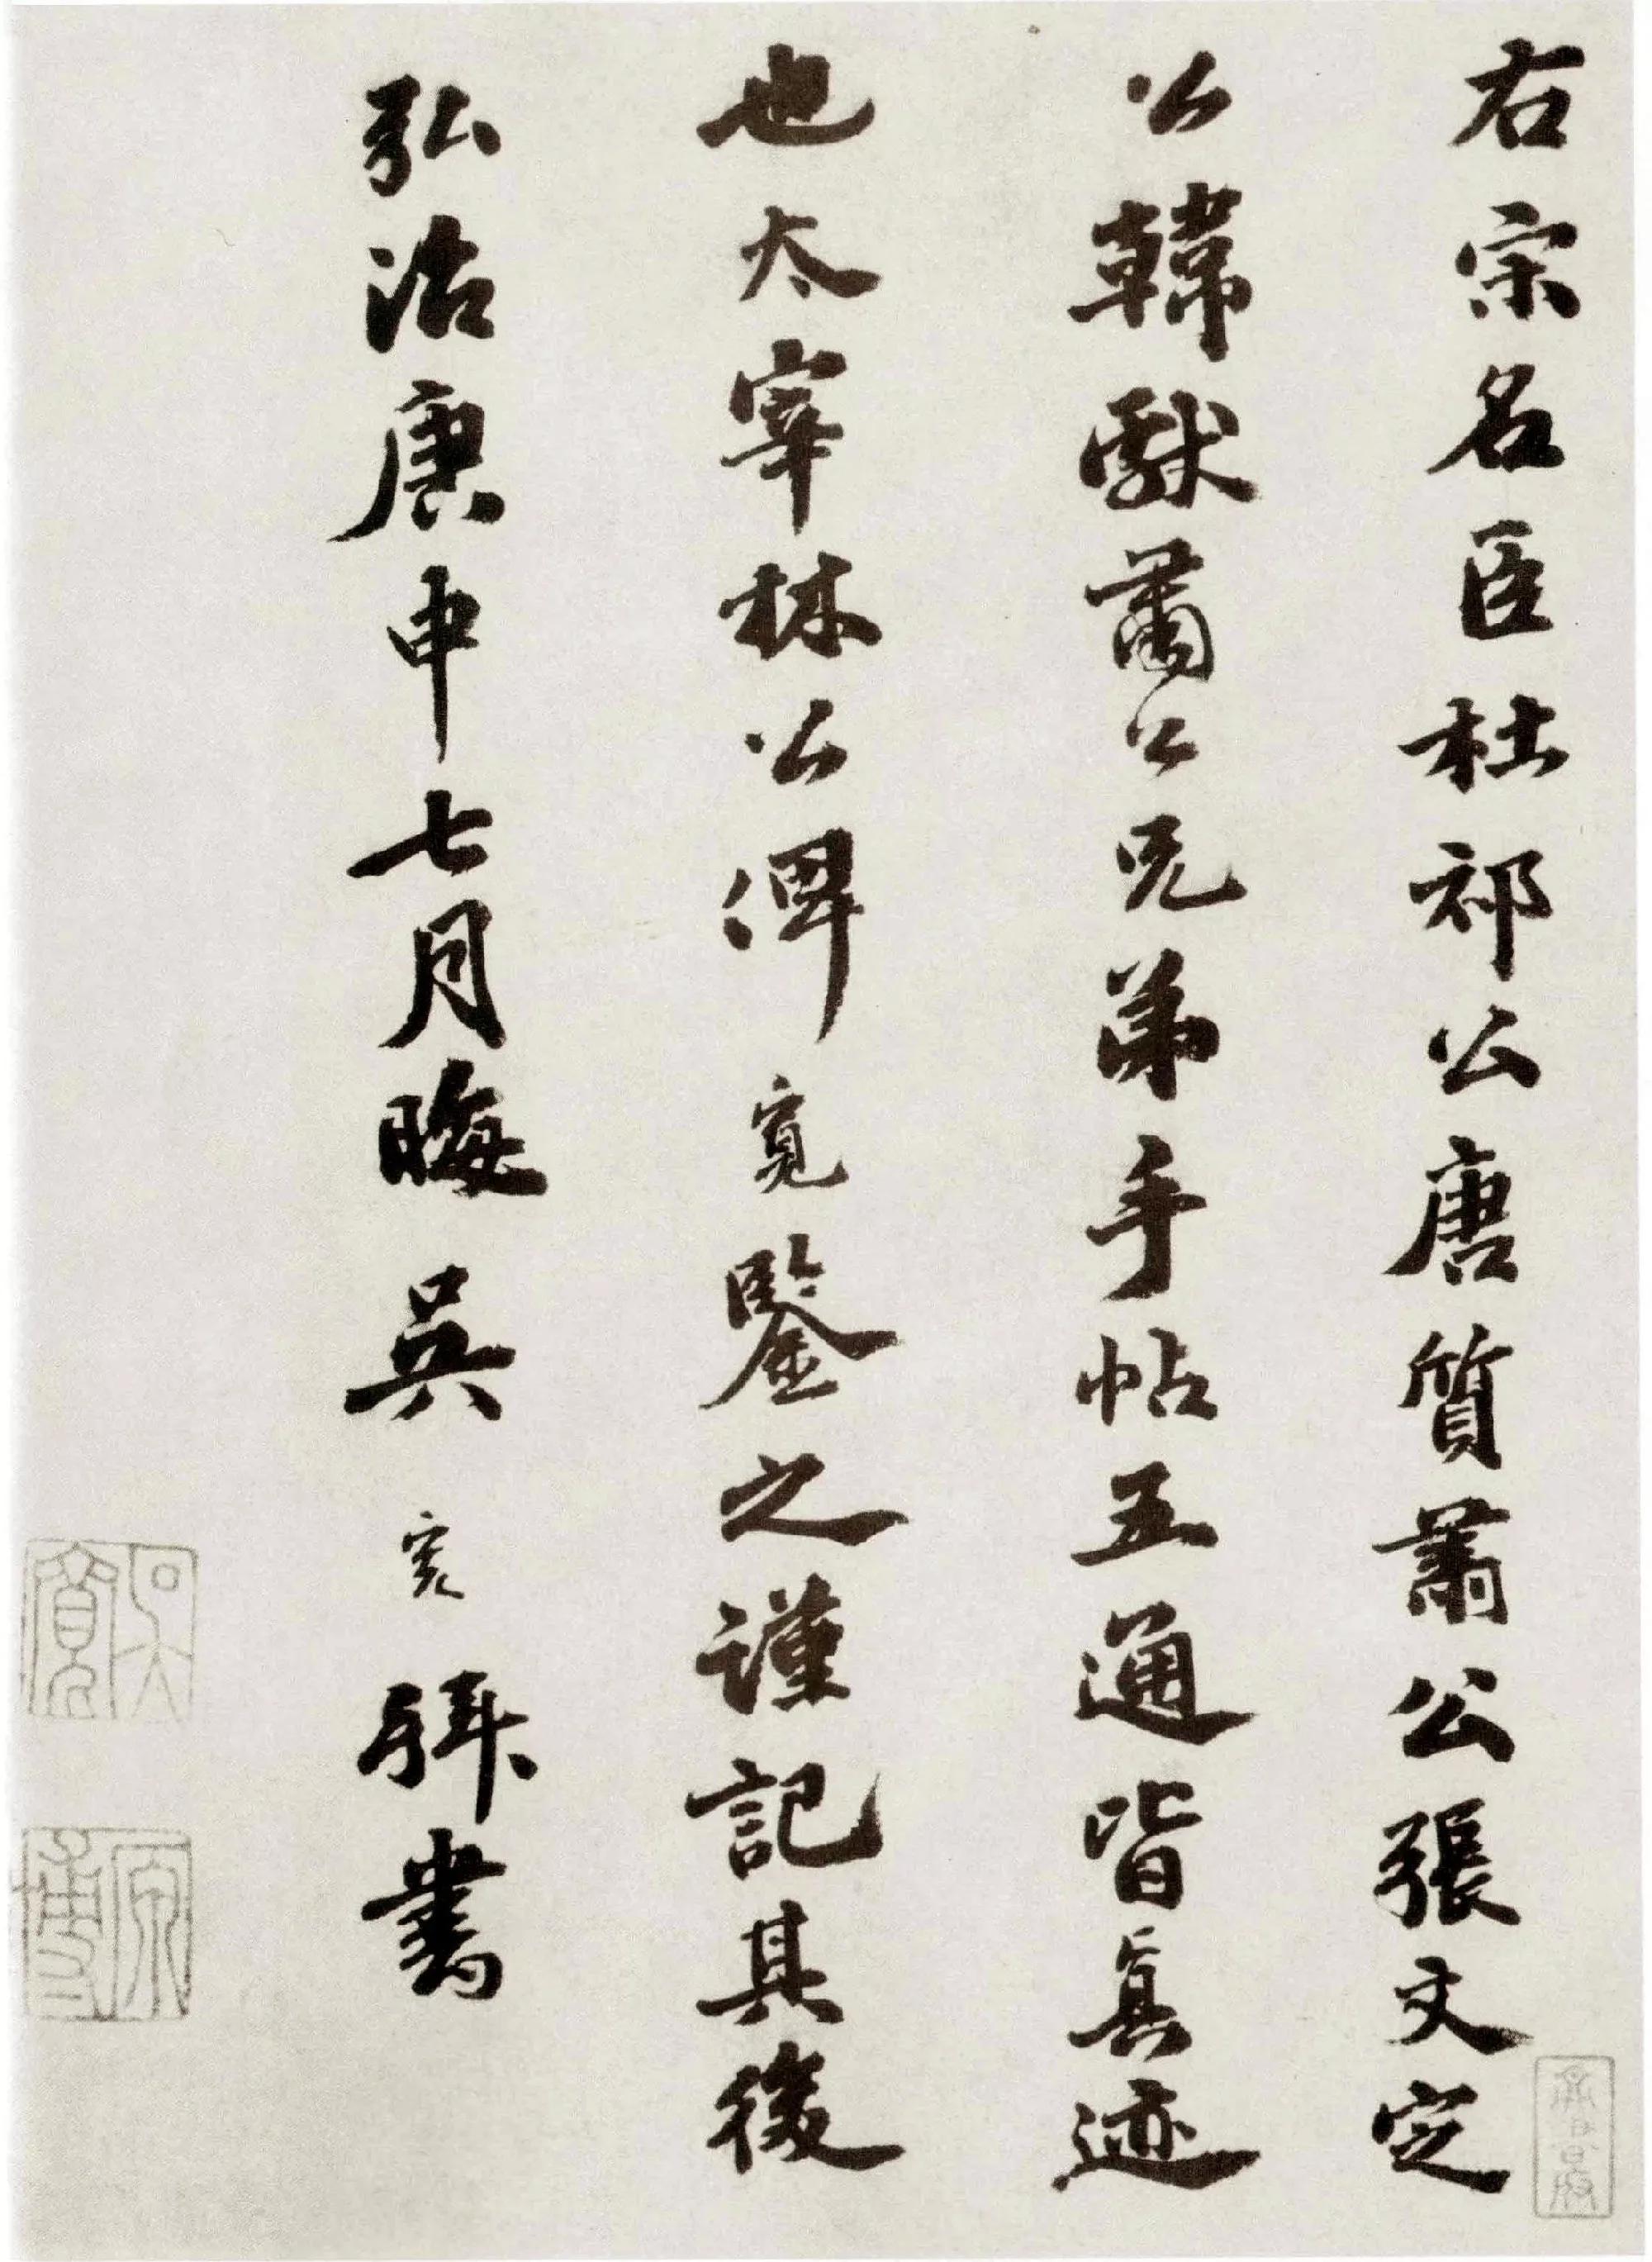 右宋名臣杜祁公唐質肅公張文定
公韓獻肅公兄弟手帖五通皆真迹
也太宰林公俾寬鑒之謹記其後
弘治庚申七月晦吳寬拜書
吳寬
原博